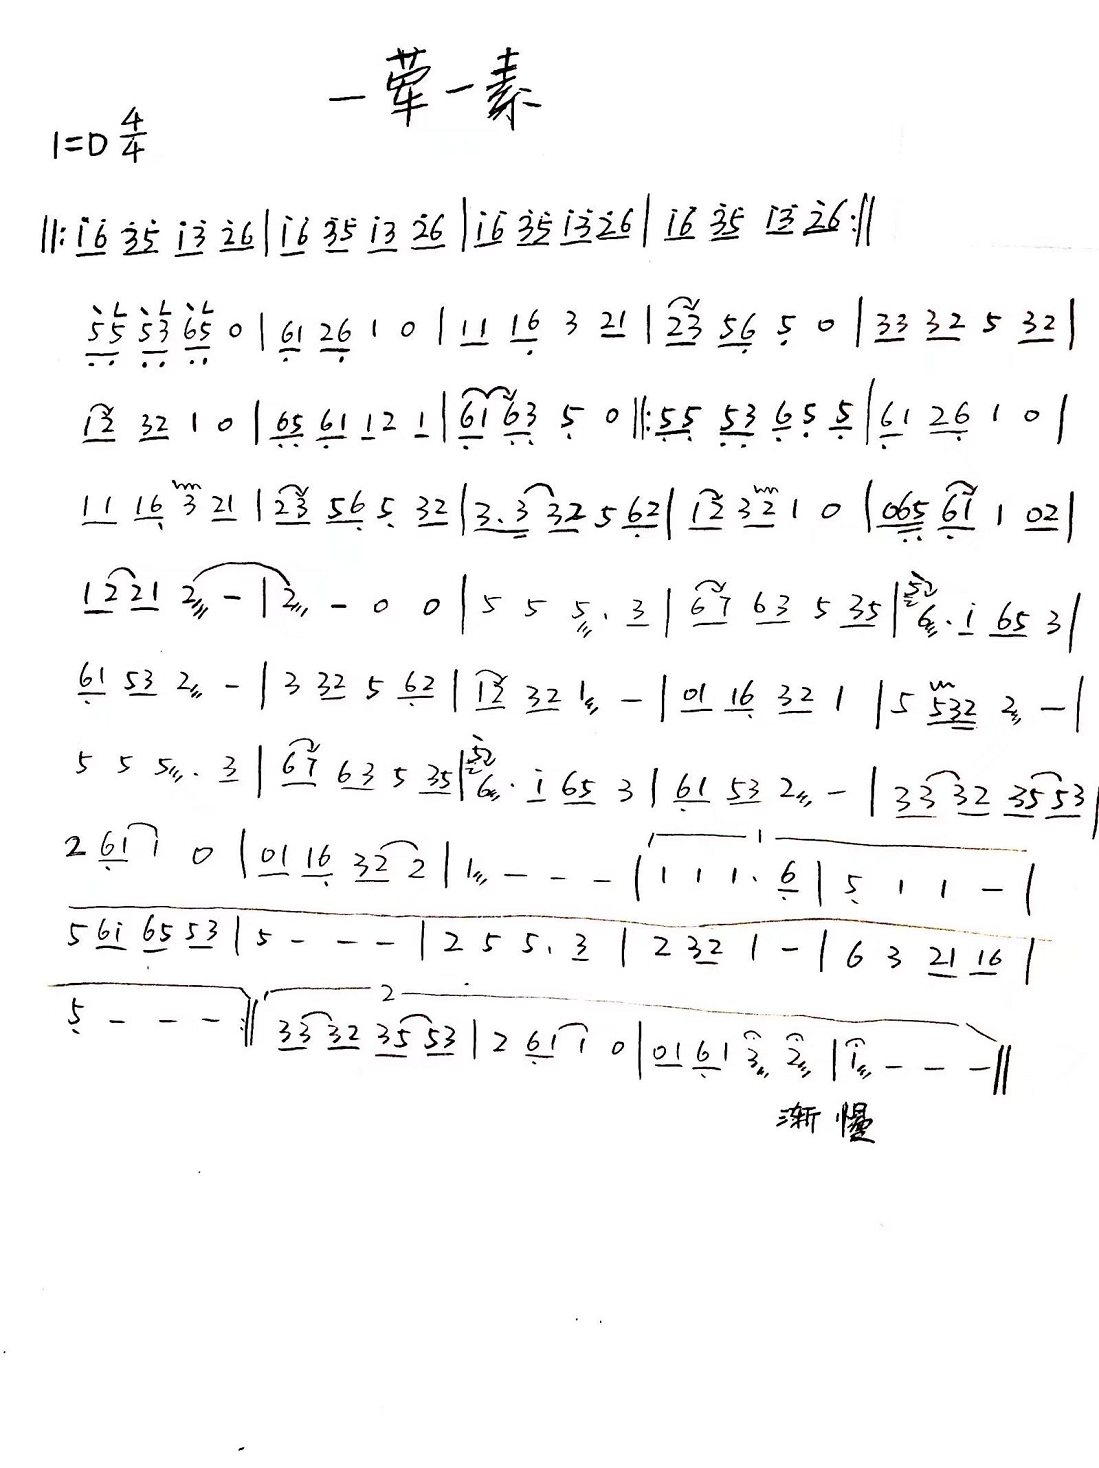 一荤一素
1=D 4/4
||: i6 35 i3 26 | i6 35 i3 26 | i6 35 i3 26 | i6 35 i3 26 :||
55 53 65 0 | 61 26 1 0 | 11 16 3 21 | 23 56 5 0 | 33 32 5 32 |
12 32 1 0 | 65 61 12 1 | 61 63 5 0 ||: 55 53 6 5 5 | 61 26 1 0 |
11 16 3 21 | 23 56 5 32 | 3.3 32 5 62 | 12 32 1 0 | 065 61 1 02 |
12 21 2 - | 2 - 0 0 | 5 5 5. 3 | 67 63 5 35 | 52 6. i 65 3 |
61 53 2 - | 3 32 5 62 | 12 32 1 - | 01 16 32 1 | 5 532 2 - |
5 5 5. 3 | 67 63 5 35 | 52 6. i 65 3 | 61 53 2 - | 33 32 35 53 |
2 61 1 0 | 01 16 32 2 | 1 - - - | 1 1 1. 6 | 5 1 1 - |
5 6i 65 53 | 5 - - - | 2 5 5. 3 | 2 32 1 - | 6 3 21 16 |
5 - - - :|| 2 33 32 35 53 | 2 61 1 0 | 01 61 3 2 | 1 - - - ||
渐慢